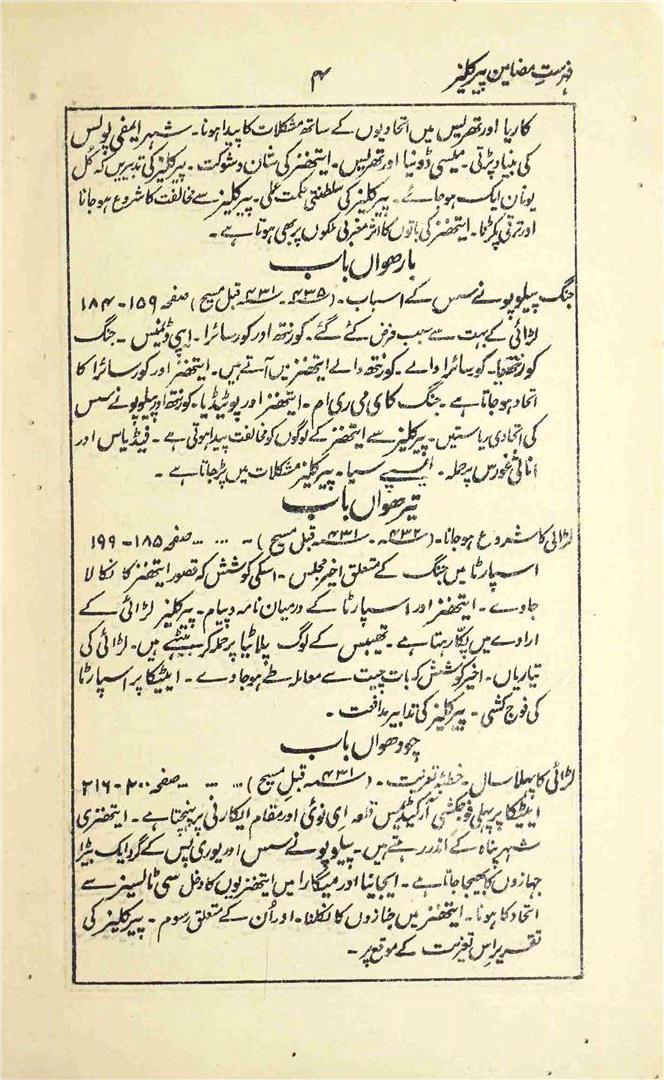 فہرستِ مضامین پیرکلیز
۴
کاریا اور تھریس میں اتحادیوں کے ساتھ مشکلات کا پیدا ہونا۔ شہر ایمفی پولس
کی بنیاد پڑتی۔ میسی ڈونیا اور تھریس۔ ایتھنز کی شان و شوکت۔ پیرکلیز کی تدبیریں کہ کُل
یونان ایک ہو جائے۔ پیرکلیز کی سلطنتی حکمت عملی۔ پیرکلیز سے مخالفت کا شروع ہو جانا
اور ترقی پکڑنا۔ ایتھنز کی باتوں کا اثر مغربی ملکوں پر بھی ہوتا ہے۔
بارھواں باب
جنگ پیلوپونے سس کے اسباب۔ (۴۳۵؁۔ ۴۳۱؁ قبل مسیح) صفحہ ۱۵۹-۱۸۴
لڑائی کے بہت سے سبب فرض کئے گئے۔ کورنتھ اور کورسائرا۔ اپی ڈیمنس۔ جنگ
کورنتھیا۔ کورسائرا والے۔ کورنتھ والے ایتھنز میں آتے ہیں۔ ایتھنز اور کورسائرا کا
اتحاد ہو جاتا ہے۔ جنگ کای می ری ام۔ ایتھنز اور پوٹیڈیا۔ کورنتھ اور پیلوپونے سس
کی اتحادی ریاستیں۔ پیرکلیز سے ایتھنز کے لوگوں کو مخالفت پیدا ہوتی ہے۔ فیڈیاس اور
انائی غورس پر حملہ۔ ایسپے سیا۔ پیرکلیز مشکلات میں پڑ جاتا ہے۔
تیرھواں باب
لڑائی کا شروع ہو جانا۔ (۴۳۲؁۔ ۴۳۱؁ قبل مسیح) … … … صفحہ ۱۸۵-۱۹۹
اسپارٹا میں جنگ کے متعلق اخیر مجلس۔ اسکی کوشش کہ قصور ایتھنز کا نکالا
جاوے۔ ایتھنز اور اسپارٹا کے درمیان نامہ و پیام۔ پیرکلیز لڑائی کے
ارادے میں پکّا رہتا ہے۔ تھیبس کے لوگ پلاٹیا پر حملہ کر بیٹھے ہیں۔ لڑائی کی
تیاریاں۔ اخیر کوشش کہ بات چیت سے معاملہ طے ہو جاوے۔ ایٹیکا پر اسپارٹا
کی فوج کشی۔ پیرکلیز کی تدابیر مدافعت۔
چودھواں باب
لڑائی کا پہلا سال۔ خطبۂ تعزیت۔ (۴۳۱؁ قبل مسیح) … … … صفحہ ۲۰۰-۲۱۶
ایٹیکا پر پہلی فوجکشی آرکیڈیمس قلعہ ای نوئی اور مقام ایکارنی پر پہنچتا ہے۔ ایتھنزی
شہر پناہ کے اندر رہتے ہیں۔ پیلوپونے سس اور یوری پس کے گرد ایک بیڑا
جہازوں کا بھیجا جاتا ہے۔ ایجائنا اور میگارا میں ایتھنزیوں کا دخل سی ٹالسیز سے
اتحاد کا ہونا۔ ایتھنز میں جنازوں کا نکلنا۔ اور اُن کے متعلق رسوم۔ پیرکلیز کی
تقریر اس تعزیت کے موقع پر۔